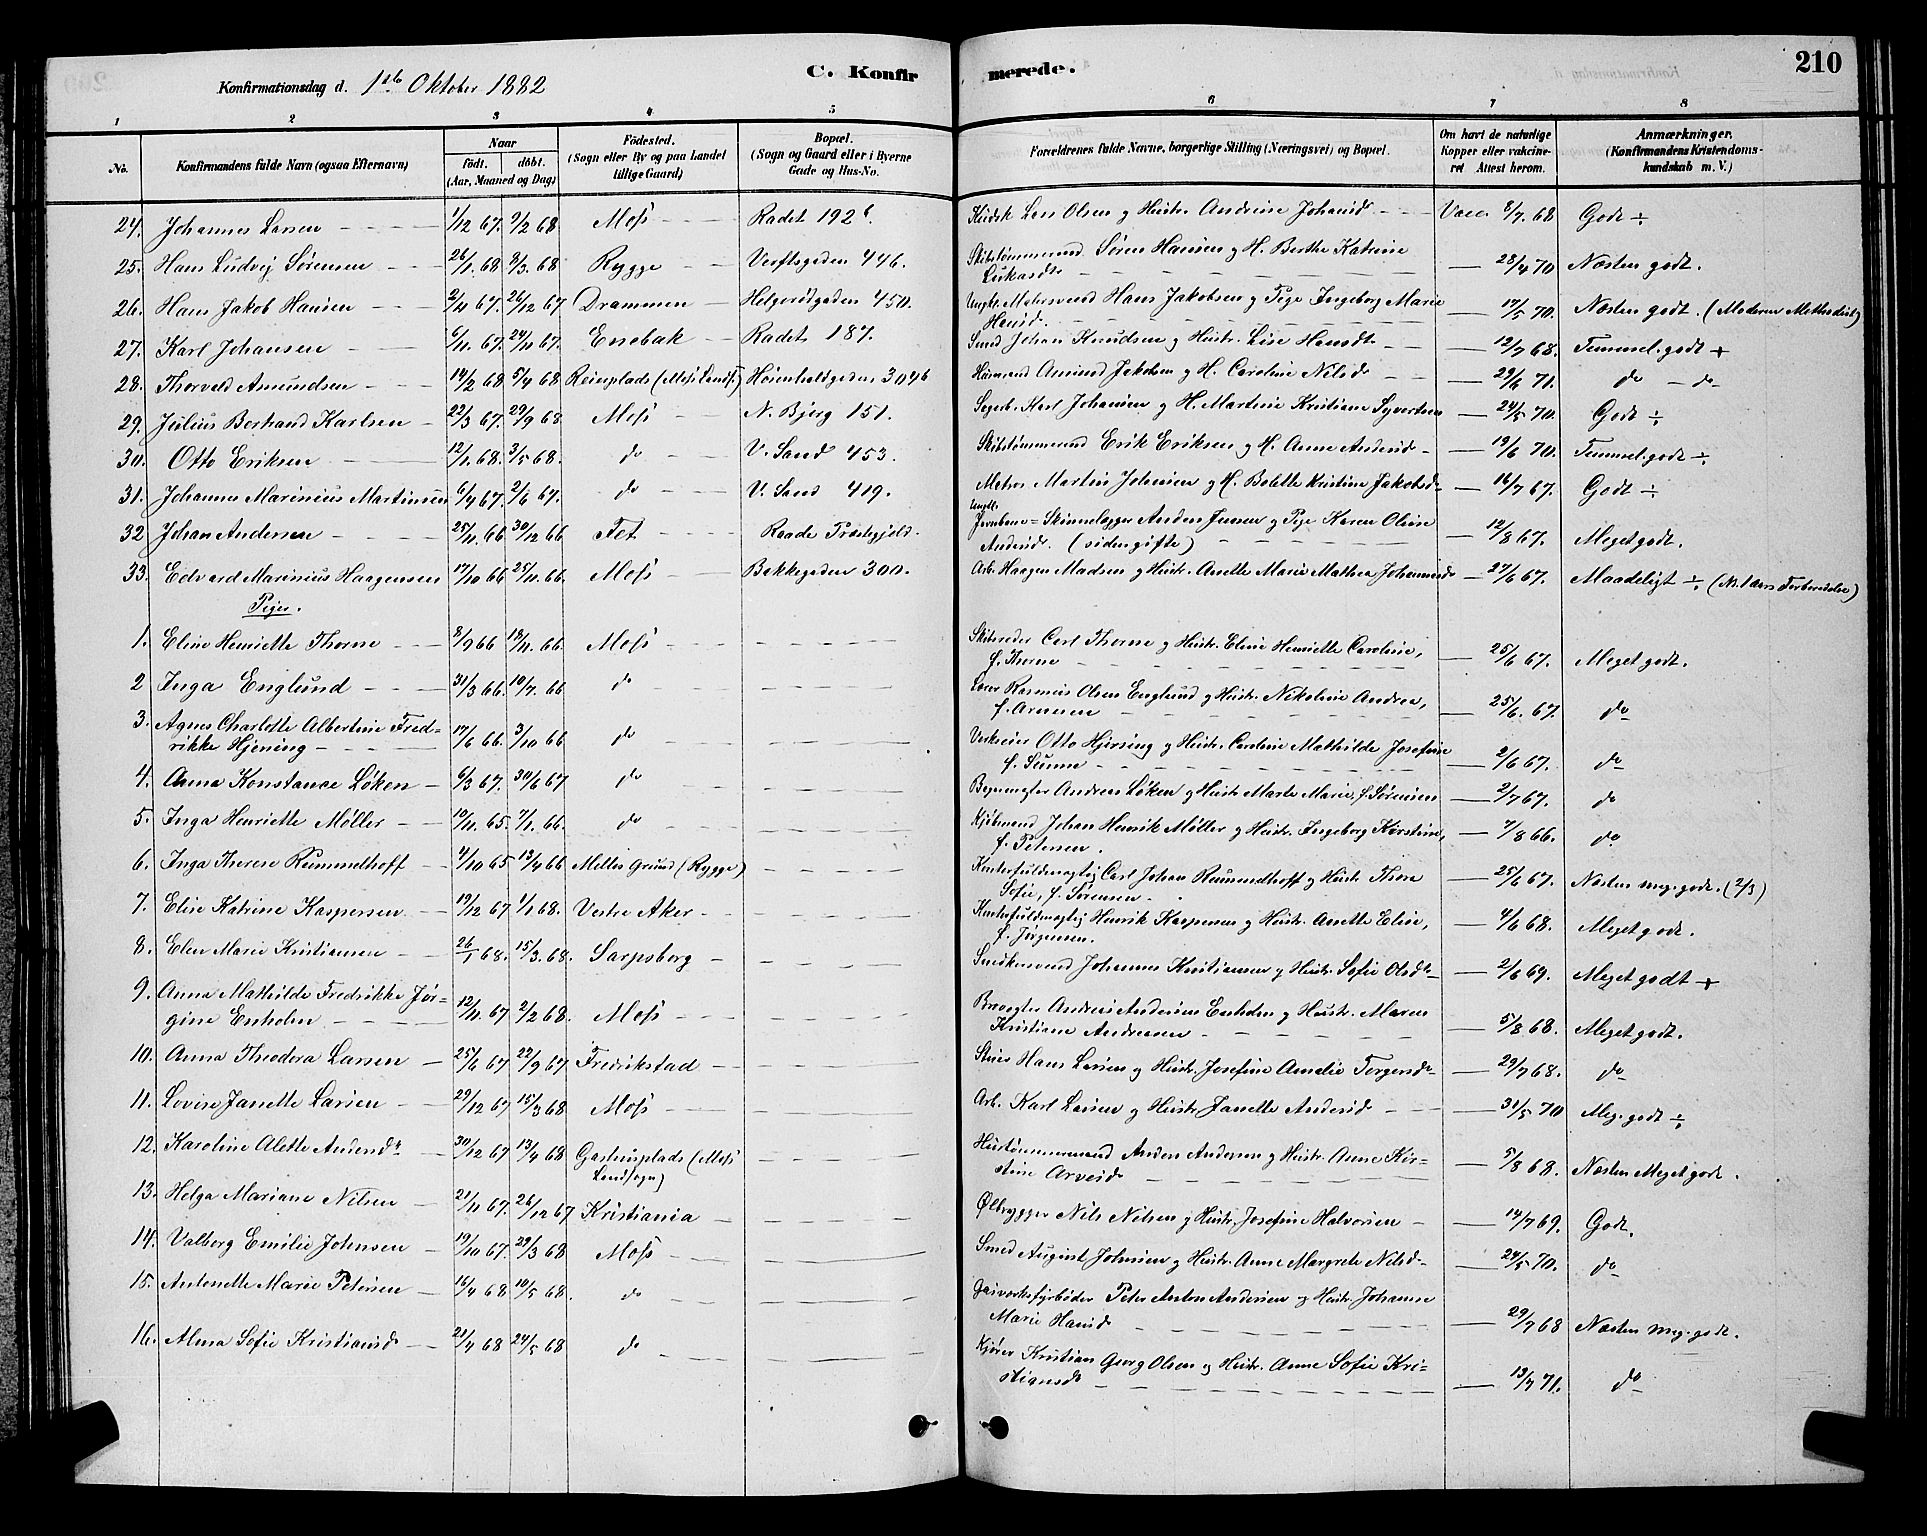 210
Konfirmationsdag d. 1ste Oktober 1882
C. Konfirmerede.
1 2 3 4 5 6 7 8
No.
Konfirmandens fulde Navn (ogsaa Efternavn)
Naar
födt. döbt.
(Aar, Maaned og Dag)
Födested.
(Sogn eller By og paa Landet
tillige Gaard)
Bopæl.
(Sogn og Gaard eller i Byerne
Gade og Hus-No.
Forældrenes fulde Navne, borgerlige Stilling (Næringsvei) og Bopæl.
Om havt de naturlige
Kopper eller vakcine-
ret Attest herom.
Anmærkninger.
(Konfirmandens Kristendoms-
kundskab m. V.)
24. Johannes Larsen 1/12 67. 9/2 68 Moss Radet 192 b. Lars Olsen og Hustr. Andrine Johansd Vacc. 8/7. 68 Godt ÷
25. Hans Ludvig Sørensen 26/1. 68 8/3. 68 Rygge Verftsgaden 446. Skibstømmermand Søren Hansen og H. Berthe Katrine
Lukasdr 28/4 70 Næsten godt.
26. Hans Jakob Hansen 2/11 67. 26/12 67 Drammen Helgerødgaden 450. Ungk. Matrosvend Hans Jakobsen og Pige Ingeborg Marie
Hansd. 17/5 70. Næsten godt. (Moderen Methodist)
27. Karl Johansen 6/11. 67. 24/11 67. Enebak Radet 187. Smed Johan Knudsen og Hustr. Lise Hansdr 12/7 68. Temmel. godt +
28. Thorvald Amundsen 14/2 68 5/4 68 Reierplads (Moss Landss.) Høienhaldgaden 304 b Amund Jakobsen og H. Caroline Nilsd 29/6 71. do do
29. Julius Berthand Karlsen 22/3 67. 29/9 68 Moss N. Bjerg 151. Karl Johansen og H. Martine Kristiane Syvertsen 24/5 70. Godt ÷
30. Otto Eriksen 12/1. 68. 3/5 68. do V. Sand 453. Skibstømmermand Erik Eriksen og H. Anne Andersd 19/6 70. Temmel. godt ÷
31. Johannes Marinius Martinsen 6/4 67. 2/6 67. do V. Sand 409. Matros Martin Johnsen og H. Bolette Kristine Jakobsd 16/7 67. Godt ÷
32 Johan Andersen 25/11. 66 30/12 66 Fet Raade Præstegjeld. Ungk. Jernbane-Skinnelægger Anders Jensen og Pige Karen Oline
Andersd. (siden gifte) 12/8 67. Meget godt.
33. Edvard Marinius Haagensen 17/10 66 25/11. 66. Moss Bakkegaden 300. Arb. Haagen Madsen og Hustr. Anette Marie Mathea Johannesd 27/6 67. Maadeligt ÷
Piger.
1. Eline Henriette Thorne 8/9 66 18/11. 66. Moss Skibsreder Carl Thorne og Hustr. Eline Henriette Caroline,
f. Thorne 25/6 67. Meget godt.
2 Inga Englund 31/3 66. 10/7. 66 do Rasmus Olsen Englund og Hustr. Nikoline Andrea,
f. Arnesen 25/6. 67. do
3. Agnes Charlotte Albertine Fred-
rikke Hjersing 17/6 66. 3/10 66 do Værkseier Otto Hjersing og Hustr. Caroline Mathilde Josefine
f. Sunne 2/6 67. do
4. Anna Konstance Løken 6/3 67. 30/6 67 do Andreas Løken og Hustr. Marte Marie, f. Sørensen 2/7 67. do
5. Inga Henriette Møller 10/11. 65. 7/1. 66. do Kjøbmand Johan Henrik Møller og Hustr. Ingeborg Kirstine,
f. Petersen. 7/8 66. do
6. Inga Therese Rummelhoff 4/10 65 13/4 66 Melløs Grund (Rygge) Kontorfuldmægtig Carl Johan Rummelhoff og Hustr. Thora
Sofie, f. Sørensen. 25/6 67. Næsten meg. godt. (2/3)
7. Elise Katrine Kaspersen 19/12 67 1/1 68. Vestre Aker Kontorfuldmægtig Henrik Kaspersen og Hustr. Anette Elise,
f. Jørgensen. 4/6 68. Meget godt.
8. Elen Marie Kristiansen 26/1 68. 15/3. 68. Sarpsborg Snedkersvend Johannes Kristiansen og Hustr. Sofie Olsdr 2/6 69. Meget godt +
9. Anna Mathilde Fredrikke Jør-
gine Enholm 12/11. 67 2/2 68. Moss Andreas Andersen Enholm og Hustr. Maren
Kristiane Andreasen 5/8 68. Meget godt.
10. Anna Theodora Larsen 25/6 67 22/9 67 Fredrikstad Hans Larsen og Hustr. Josefine Amalie Torgersdr 29/7 68. do
11. Lovise Janette Larsen 29/12 67 15/3 68 Moss Arb. Karl Larsen og Hustr. Janette Andersd 31/5 70 Meg. godt ÷
12. Karoline Alette Andersdr 30/12 67 13/4 68 Gashusplads (Moss
Landsogn) Hustømmermand Anders Andersen og Hustr. Anne Kir-
stine Arvesd 5/8 68. Næsten Meget godt.
13. Helga Mariane Nilsen 21/11 67. 26/12 67 Kristiania Ølbrygger Nils Nilsen og Hustr. Josefine Halvorsen 14/7 69. Godt.
14. Valborg Emilie Johnsen 19/10 67. 29/3 68 Moss Smed August Johnsen og Hustr. Anne Margrete Nilsd 24/5 70. do
15. Antonette Marie Petersen 16/4 68 10/5 68. do Gasværksfyrbøder Peter Anton Andersen og Hustr. Johanne
Marie Hansd 29/7 68 Næsten meg. godt.
16. Alma Sofie Kristiansd 21/4 68 24/5 68 do Kjører Kristian Georg Olsen og Hustr. Anne Sofie Kri-
stiansd 13/7 71. do